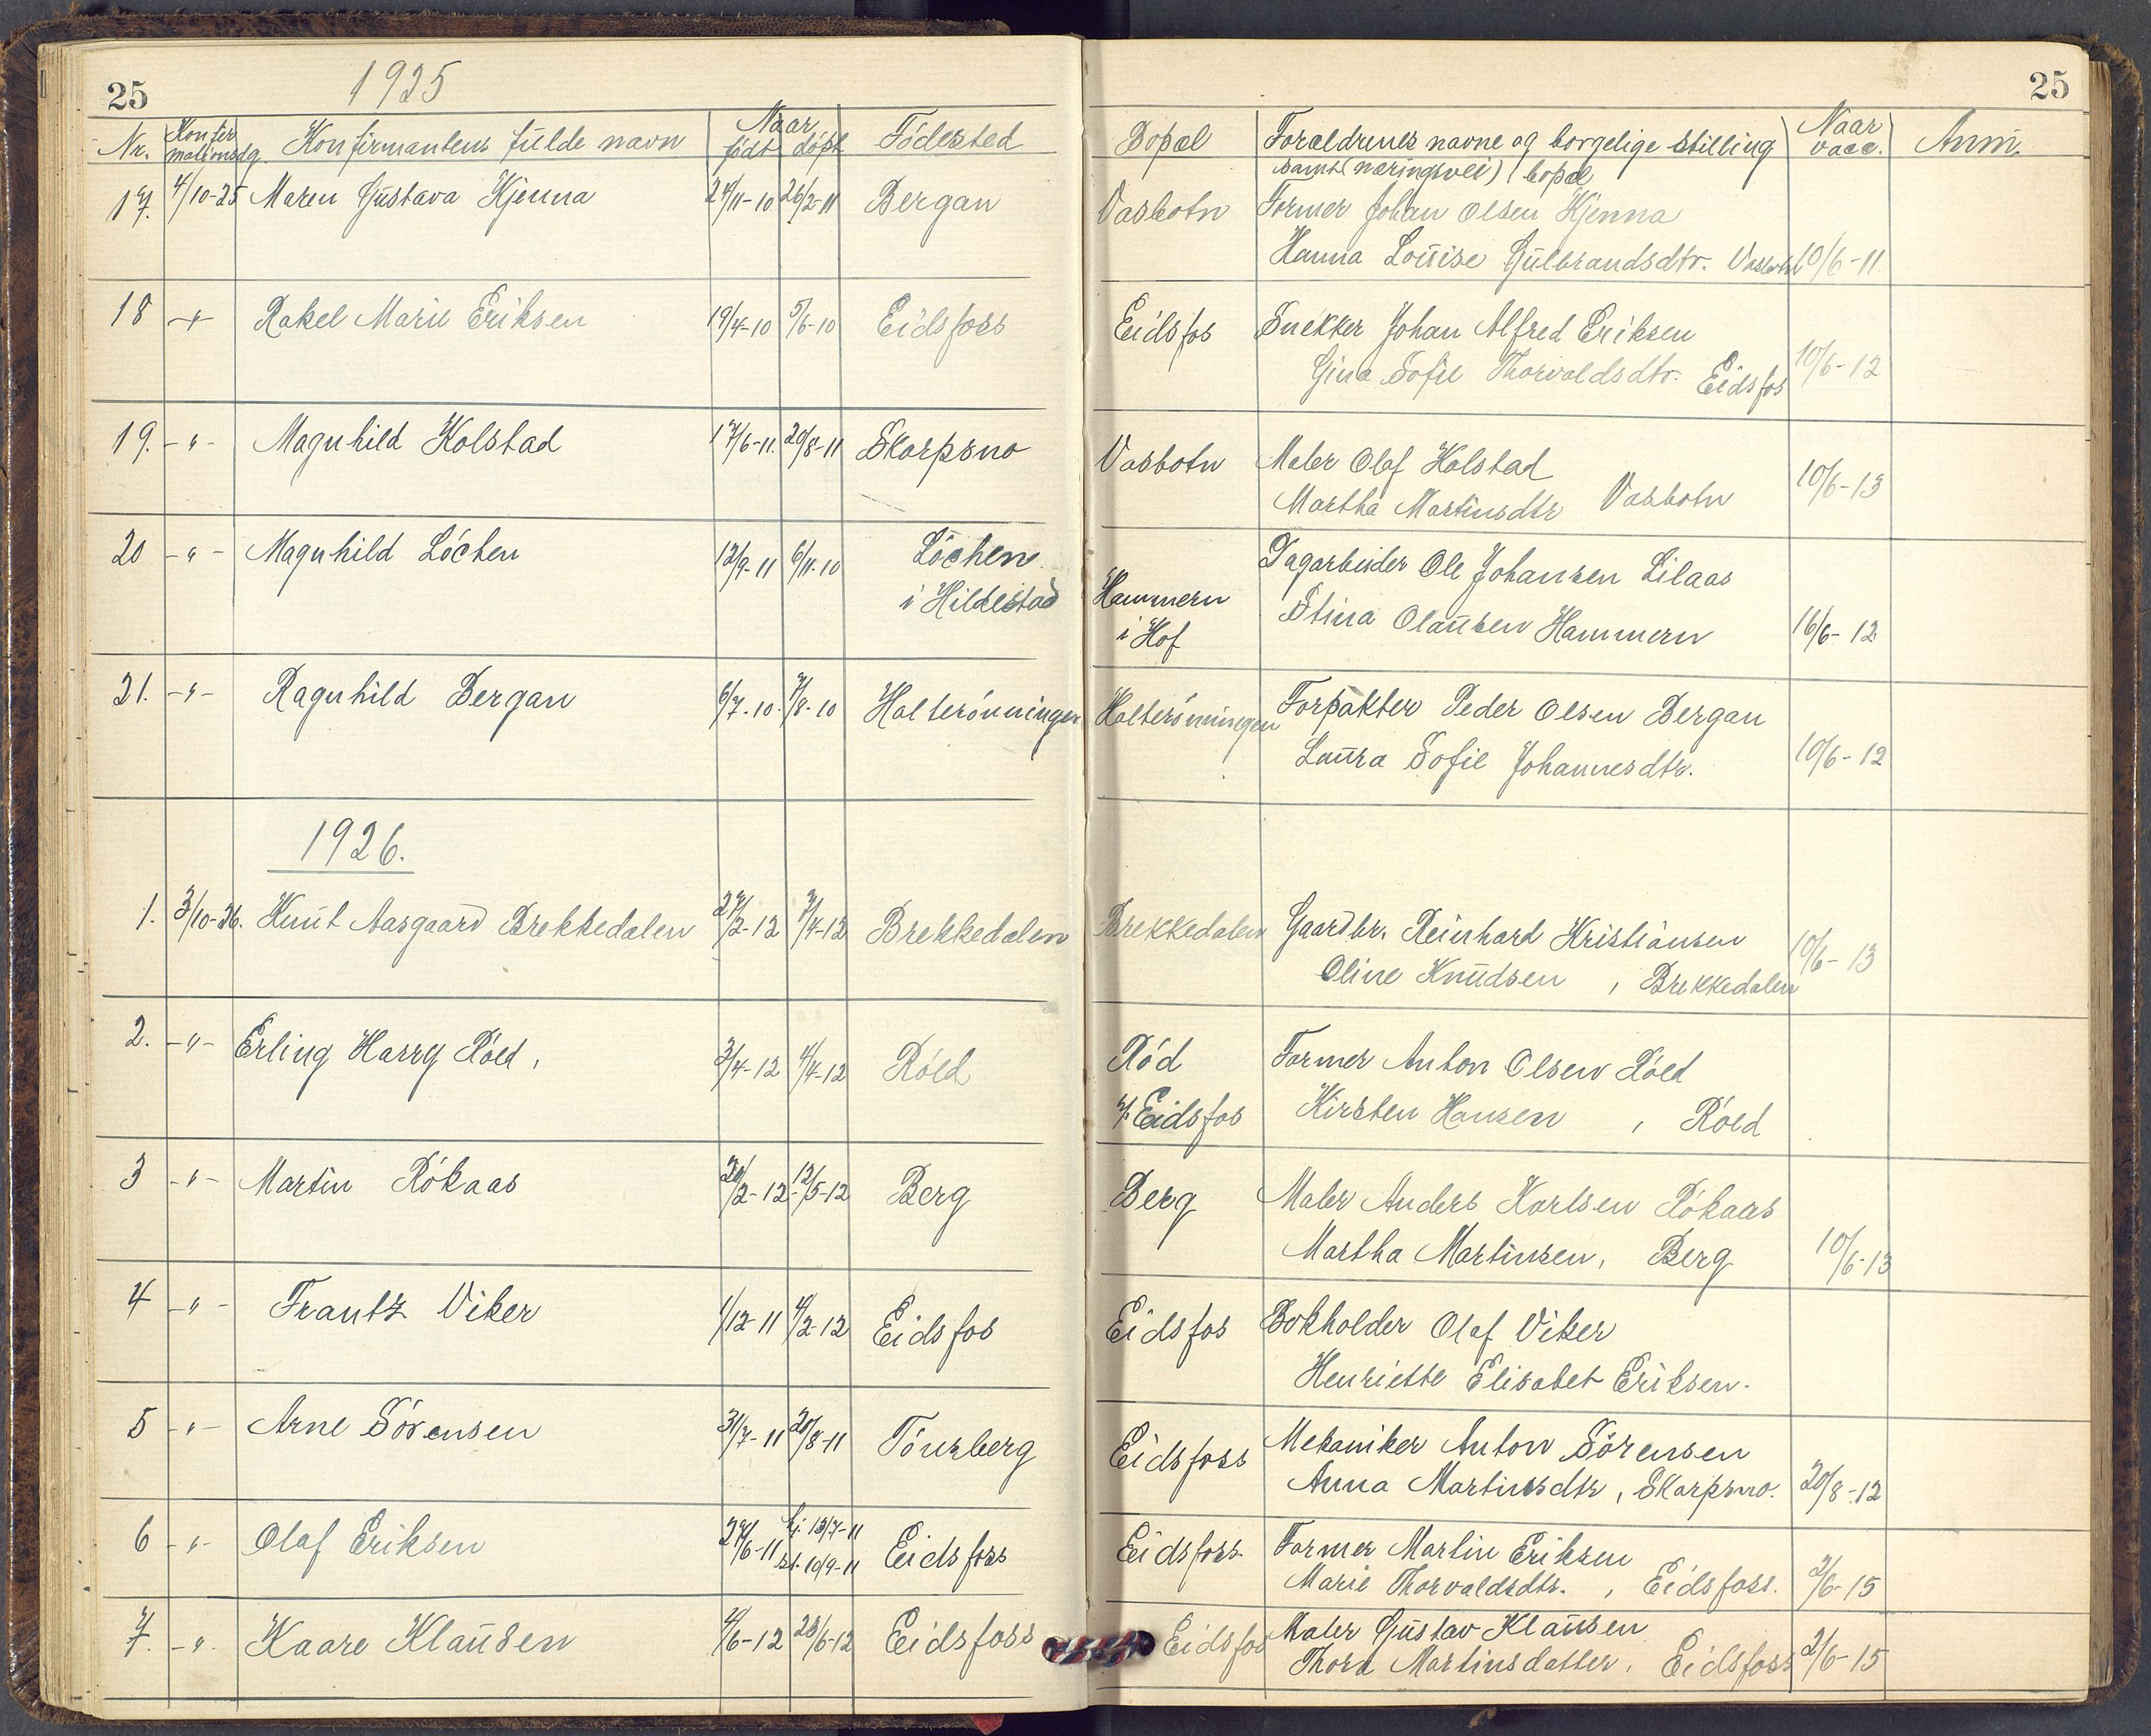 25
1925
Nr. Konfirmationsdg. Konfirmantens fulde navn Naar født döpt Födested
17. 4/10-25 Maren Gustava Kjenna 24/11-10 26/2-11 Bergan
18 -"- Rakel Marie Eriksen 19/4-10 5/6-10 Eidsfoss
19. -"- Magnhild Kolstad 17/6-11. 20/8-11 Skarpsno
20 -"- Magnhild Löchen 12/9-11 6/11-10 Löchen
i Hildestad
21. -"- Ragnhild Bergan 6/7-10. 7/8-10 Holterönningen
1926.
1. 3/10-26. Knut Aasgaard Brekkedalen 27/2-12 7/4-12 Brekkedalen
2. -"- Erling Harry Röed, 3/4-12 4/4-12 Röed
3 -"- Martin Rökaas 20/2-12 12/5-12 Berg
4 -"- Frantz Viker 1/12-11 4/2-12 Eidsfos
5 -"- Arne Sörensen 31/7-11 20/8-11 Tönsberg
6 -"- Olaf Eriksen 27/6-11 hj. 13/7-11
st. 10/9-11 Eidsfoss
7. -"- Kaare Klausen 4/6-12 23/6-12 Eidsfoss
25
Bopæl Forældrenes navne og borgelige stilling Naar vacc. Anm.
samt (næringsvei) bopæl
Vasbotn Former Johan Olsen Kjenna
Hanna Louise Gulbrandsdtr. Vasbotn 10/6-11
Eidsfos Snekker Johan Alfred Eriksen
Gina Sofie Thorvaldsdtr. Eidsfos 10/6-12
Vasbotn Maler Olaf Kolstad
Martha Martinsdtr Vasbotn 10/6-13
Hammern Dagarbeider Ole Johansen Lilaas
i Hof Stina Olausen Hammern 16/6-12
Holterönningen Forpakter Peder Olsen Bergan
Laura Sofie Johannesdtr. 10/6-12
Brekkedalen Gaardbr. Reinhard Kristiansen
Oline Knudsen, Brekkedalen 10/6-13
Röd Former Anton Olsen Röed
p/ Eidsfos Kirsten Hansen, Röed
Berg Maler Anders Karlsen Rökaas
Martha Martinsen, Berg 10/6-13
Eidsfos Bokholder Olaf Viker
Henriette Elisabet Eriksen.
Eidsfoss Mekaniker Anton Sörensen
Anna Martinsdtr, Skarpsno. 20/8-12
Eidsfoss. Former Martin Eriksen
Marie Thorvaldsdtr., Eidsfoss. 2/6-15
Eidsfos Maler Gustav Klausen
Thora Martinsdatter, Eidsfoss 2/6-15